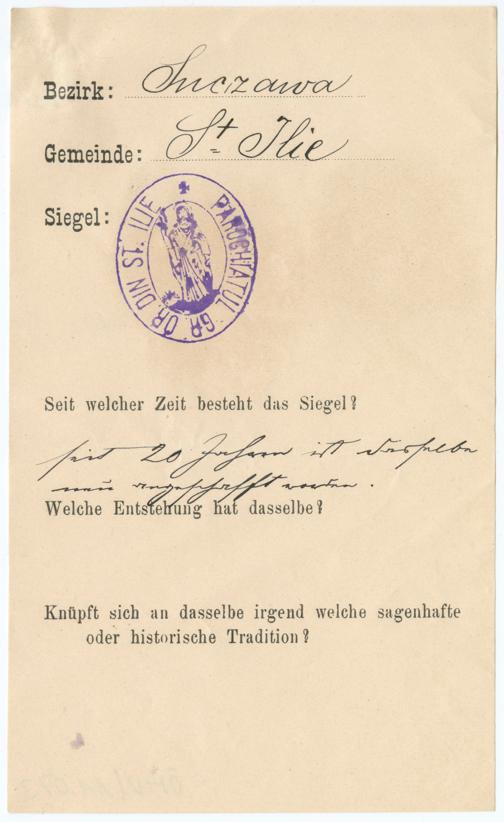 Bezirk: Suczawa
Gemeinde: St Ilie
Siegel:
PAROCHIATUL GR. OR. DIN ST. ILIE
Seit welcher Zeit besteht das Siegel?
seit 20 Jahren ist dasselbe
neu angeschafft worden.
Welche Entstehung hat dasselbe?
Knüpft sich an dasselbe irgend welche sagenhafte
oder historische Tradition?